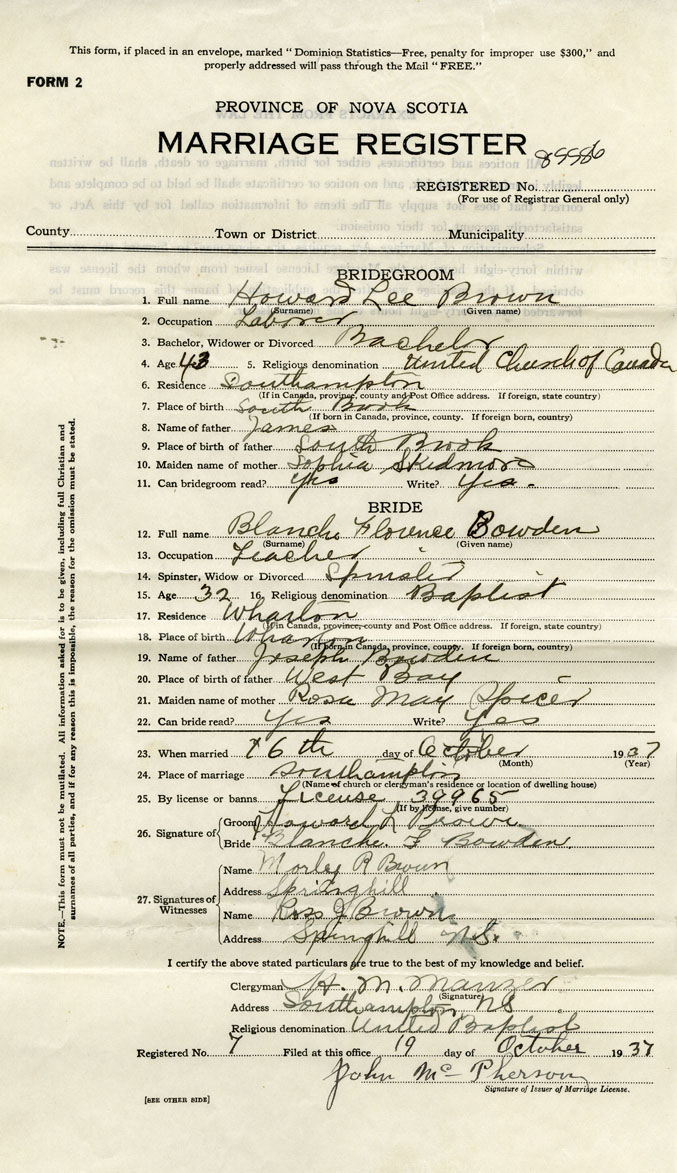 This form, if placed in an envelope, marked "Dominion Statistics—Free, penalty for improper use $300," and
properly addressed will pass through the Mail "FREE."
FORM 2
PROVINCE OF NOVA SCOTIA
MARRIAGE REGISTER
REGISTERED No.
(For use of Registrar General only)
County Town or District Municipality
BRIDEGROOM
1. Full name Howard Lee Brown
(Surname) (Given name)
2. Occupation Laborer
3. Bachelor, Widower or Divorced Bachelor
4. Age 43 5. Religious denomination United Church of Canada
6. Residence Southampton
(If in Canada, province, county and Post Office address. If foreign, state country)
7. Place of birth South Brook
(If born in Canada, province, county. If foreign born, country)
8. Name of father James
9. Place of birth of father South Brook
10. Maiden name of mother Sophia Skidmore
11. Can bridegroom read? Yes Write? Yes.
BRIDE
12. Full name Blanche Florence Bowden
(Surname) (Given name)
13. Occupation Teacher
14. Spinster, Widow or Divorced Spinster
15. Age 32 16. Religious denomination Baptist
17. Residence Wharton
(If in Canada, province, county and Post Office address. If foreign, state country)
18. Place of birth Wharton
(If born in Canada, province, county. If foreign born, country)
19. Name of father Joseph Bowden
20. Place of birth of father West Bay
21. Maiden name of mother Rosa May Spicer
22. Can bride read? Yes Write? Yes
23. When married 16th day of October 1937
(Month) (Year)
24. Place of marriage Southampton
(Name of church or clergyman's residence or location of dwelling house)
25. By license or banns License 39965
(If by license, give number)
26. Signature of Groom Howard L Brown
Bride Blanche F Bowden
27. Signatures of Witnesses
Name Morley R Brown
Address Springhill
Name Ross J Brown
Address Springhill N.S.
I certify the above stated particulars are true to the best of my knowledge and belief.
Clergyman H. M. Manzer
(Signature)
Address Southampton, NS
Religious denomination United Baptist
Registered No. 7 Filed at this office 19 day of October 1937
John McPherson
Signature of Issuer of Marriage License.
[SEE OTHER SIDE]
NOTE.—This form must not be mutilated. All information asked for is to be given, including full Christian and
surnames of all parties, and if for any reason this is impossible, the reason for the omission must be stated.